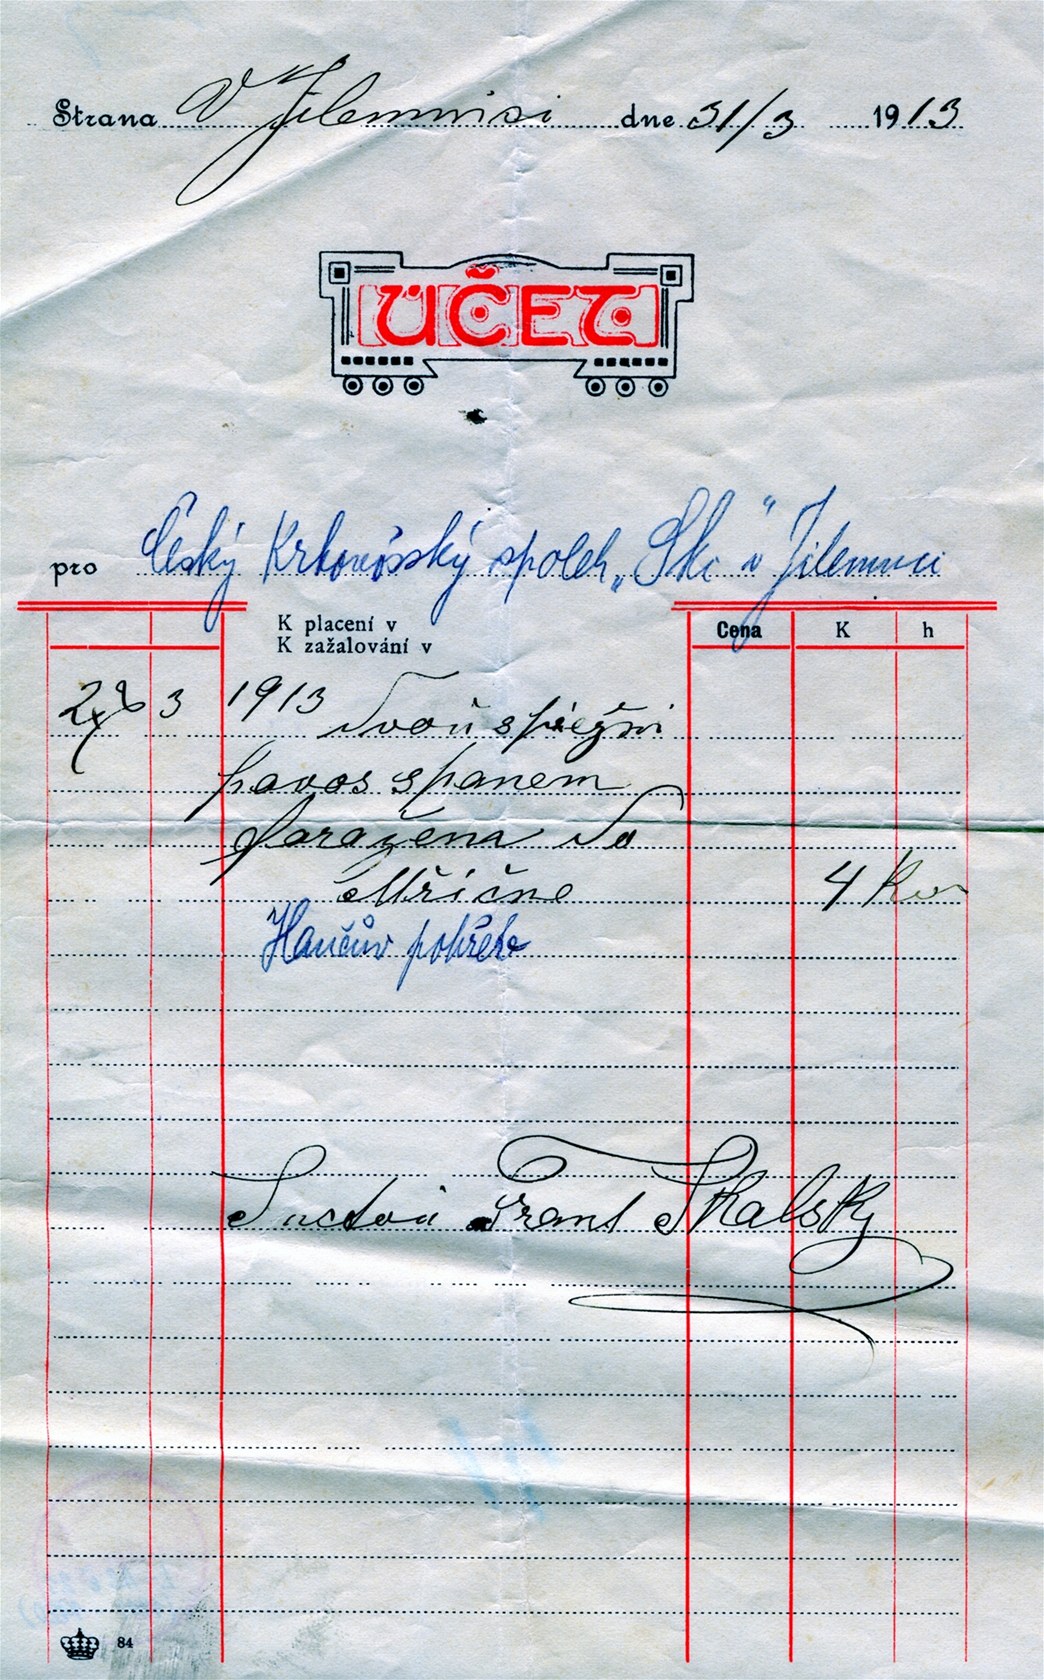 Strana V Jilemnici dne 31/3 1913
ÚČET
pro Český Krkonošský spolek „Ski“ v Jilemnici
K placení v
K zažalování v
Cena K h
3 1913
povos s panem
do
Mříčné 4 Kor
Hančův pohřeb
Frant Skalsky
84